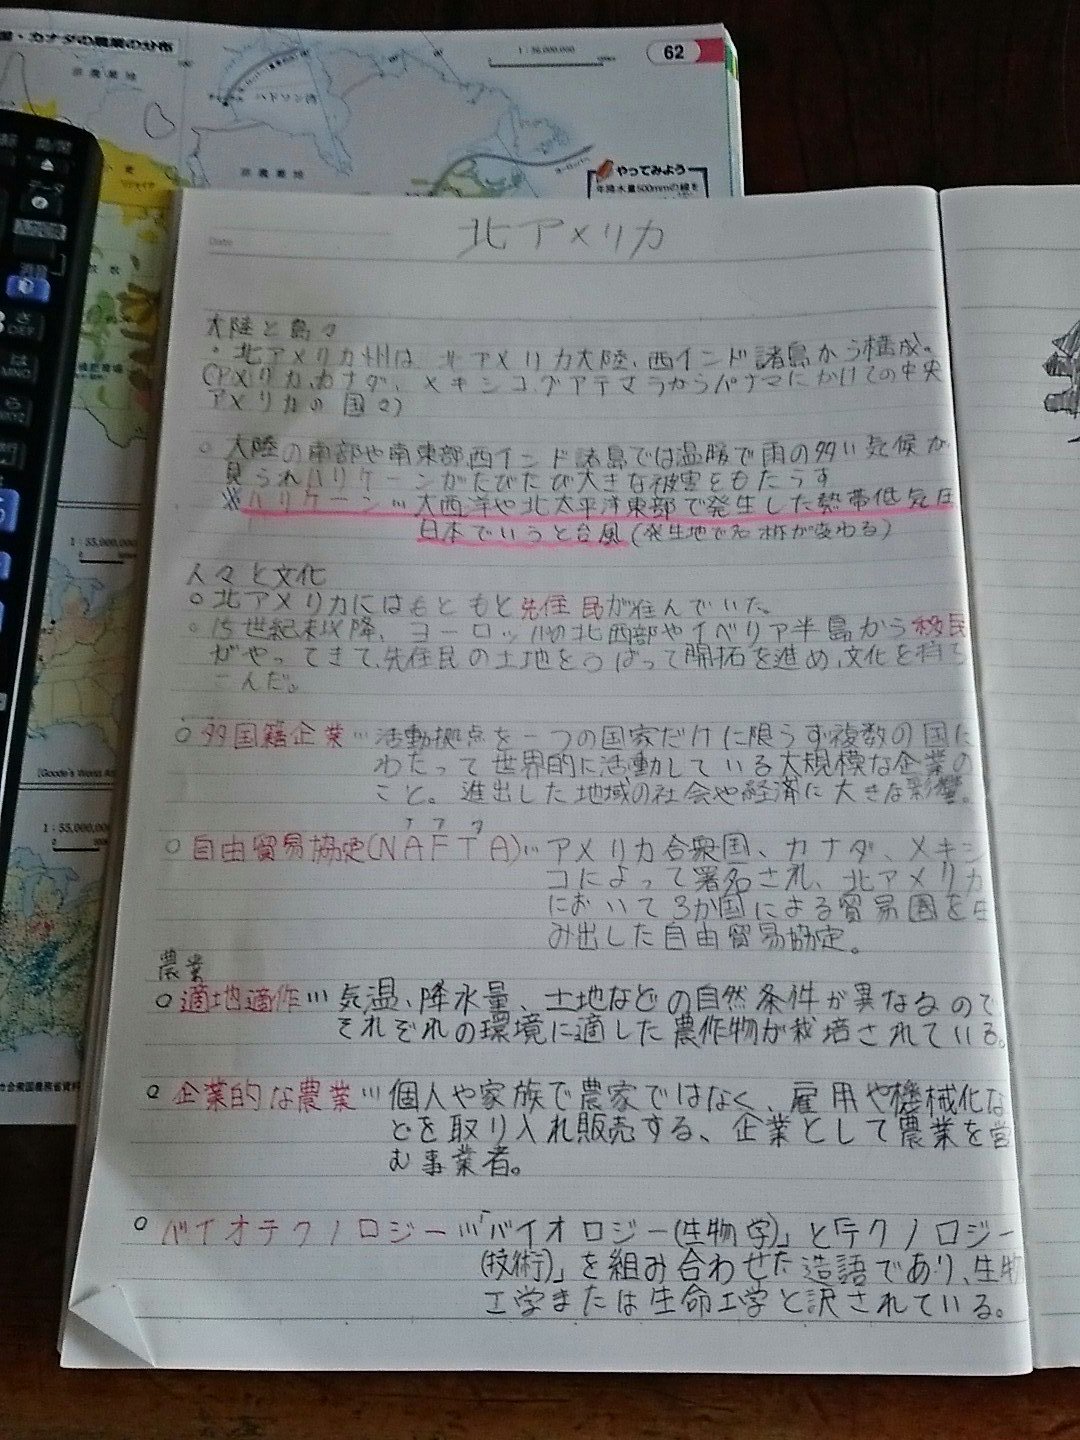 ・カナダの農業の分布
1：36,000,000
62
ハドソン湾
やってみよう
年降水量500mmの線を
Date
北アメリカ
大陸と島々
・北アメリカ州は 北アメリカ大陸、西インド諸島から構成。
(アメリカ、カナダ、メキシコ、グアテマラからパナマにかけての中央
アメリカの国々)
○大陸の南部や南東部西インド諸島では温暖で雨の多い気候が
見られハリケーンがたびたび大きな被害をもたらす
※ハリケーン…大西洋や北太平洋東部で発生した熱帯低気圧
日本でいうと台風(発生地で名称が変わる)
人々と文化
○北アメリカにはもともと先住民が住んでいた。
○15世紀末以降、ヨーロッパの北西部やイベリア半島から移民
がやってきて、先住民の土地をうばって開拓を進め、文化を持ち
こんだ。
○多国籍企業…活動拠点を一つの国家だけに限らず複数の国に
わたって世界的に活動している大規模な企業の
こと。進出した地域の社会や経済に大きな影響。
ナフタ
○自由貿易協定(NAFTA)…アメリカ合衆国、カナダ、メキシ
コによって署名され、北アメリカ
において3か国による貿易圏を生
み出した自由貿易協定。
農業
○適地適作…気温、降水量、土地などの自然条件が異なるので
それぞれの環境に適した農作物が栽培されている。
○企業的な農業…個人や家族で農家ではなく、雇用や機械化な
どを取り入れ販売する、企業として農業を営
む事業者。
○バイオテクノロジー…「バイオロジー(生物学)」と「テクノロジー
(技術)」を組み合わせた造語であり、生物
工学または生命工学と訳されている。
1：55,000,000
(Goode's World At
1：55,000,000
合衆国農務省資料